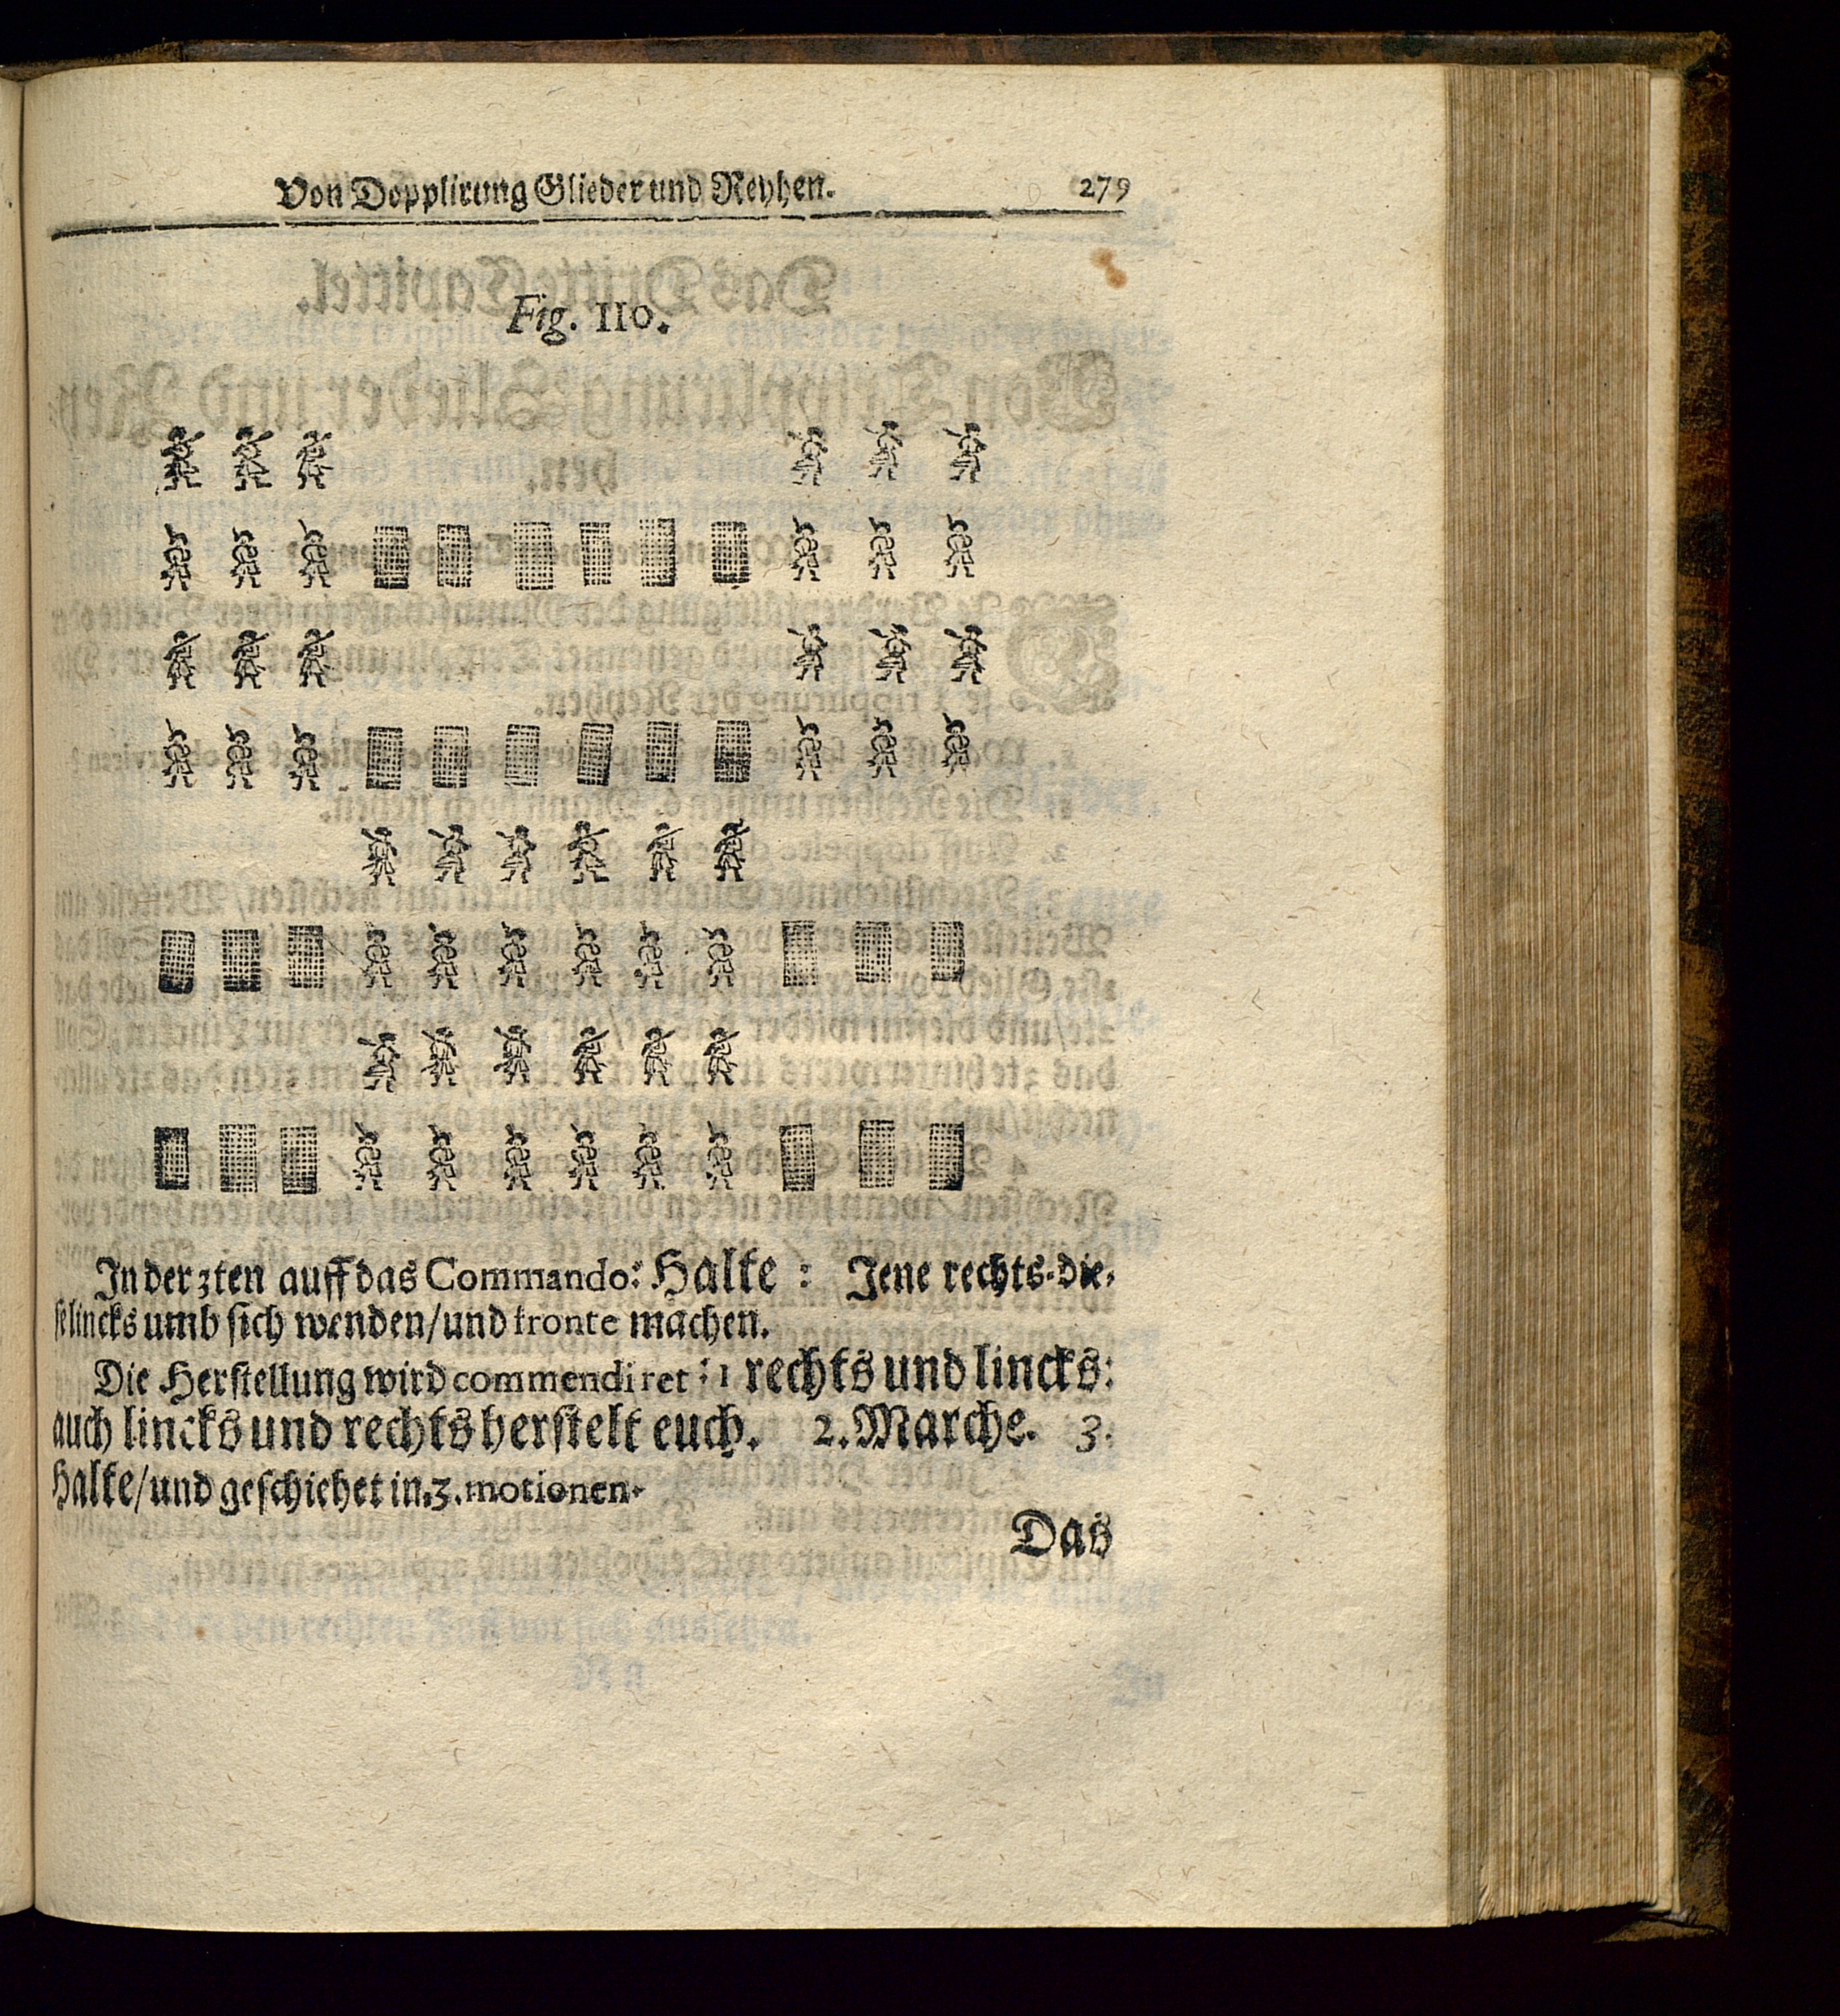 Von Dopplirung Glieder und Reyhen. 279
Fig. 110.
In der 3ten auff das Commando: Halte : Jene rechts-die-
se lincks umb sich wenden/und fronte machen.
Die Herstellung wird commendiret : 1 rechts und lincks:
auch lincks und rechts herstelt euch. 2. Marche. 3.
Halte/und geschiehet in.3.motionen.
Das